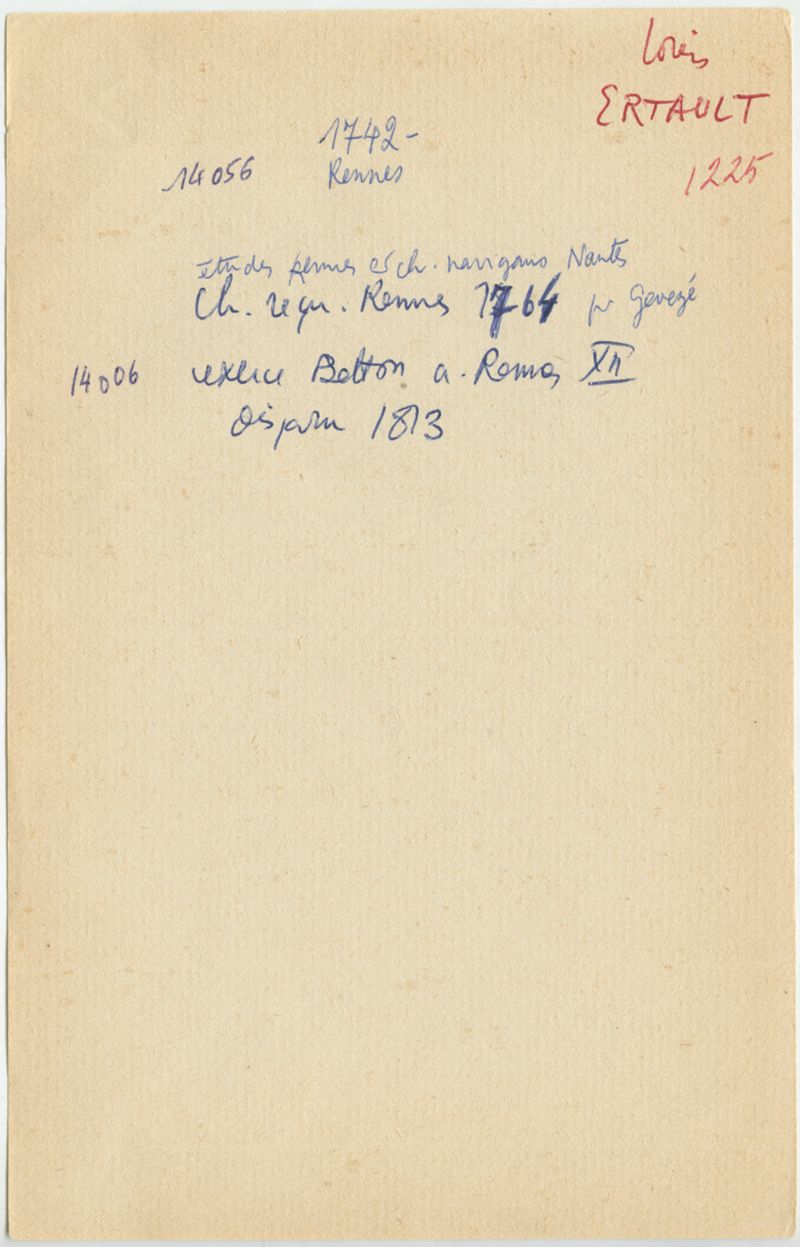 Louis
ERTAULT
1225
1742-
14056 Rennes
études Rennes et ch. navigans Nantes
Ch. reçu. Rennes 1764 pr Gevezé
14006 exerce Betton a. Rennes XII
disparu 1813